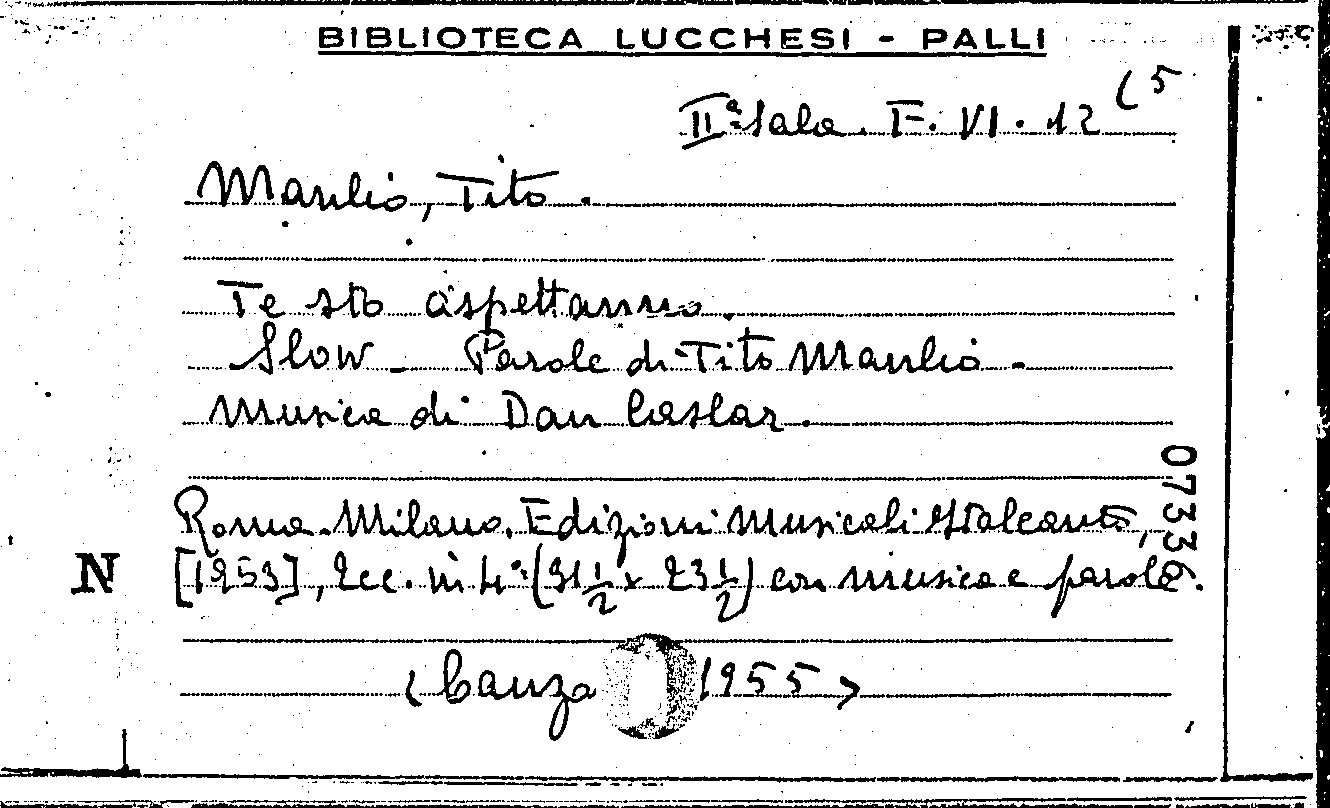 BIBLIOTECA LUCCHESI - PALLI
IIª Sala. F. VI. 12 (5
Manlio, Tito.
Te sto aspettanno.
Slow - Parole di Tito Manlio -
Musica di Dan Caslar.
Roma-Milano. Edizioni Musicali Italcanto,
[1953], 2cc. in 4º (31 1/2 x 23 1/2) con musica e parole.
07336
N
(Canzo 1955)